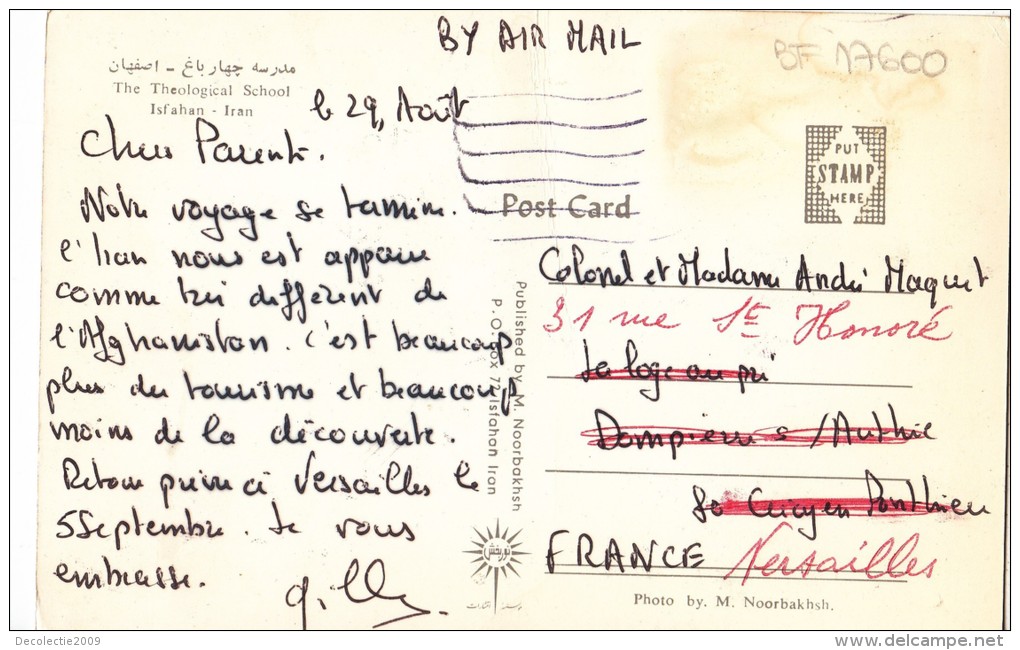 BY AIR MAIL
BF 17600
مدرسه چهارباغ - اصفهان
The Theological School
Isfahan - Iran
le 29, Août
Chers Parents.
Notre voyage se termine.
l'Iran nous est apparu
comme très différent de
l'Afghanistan. c'est beaucoup
plus du tourisme et beaucoup
moins de la découverte.
Retour prévu à Versailles le
5 Septembre. Je vous
embrasse.
Gilles.
PUT
STAMP
HERE
Post Card
Published by M. Noorbakhsh
P.O. Box 72 Isfahan Iran
Colonel et Madame André Maquet
31 rue St Honoré
La loge au pré
Dompierre s/Authie
80 Crécy en Ponthieu
FRANCE Versailles
نوربخش
Photo by. M. Noorbakhsh.
Decolectie2009
www.delcampe.net